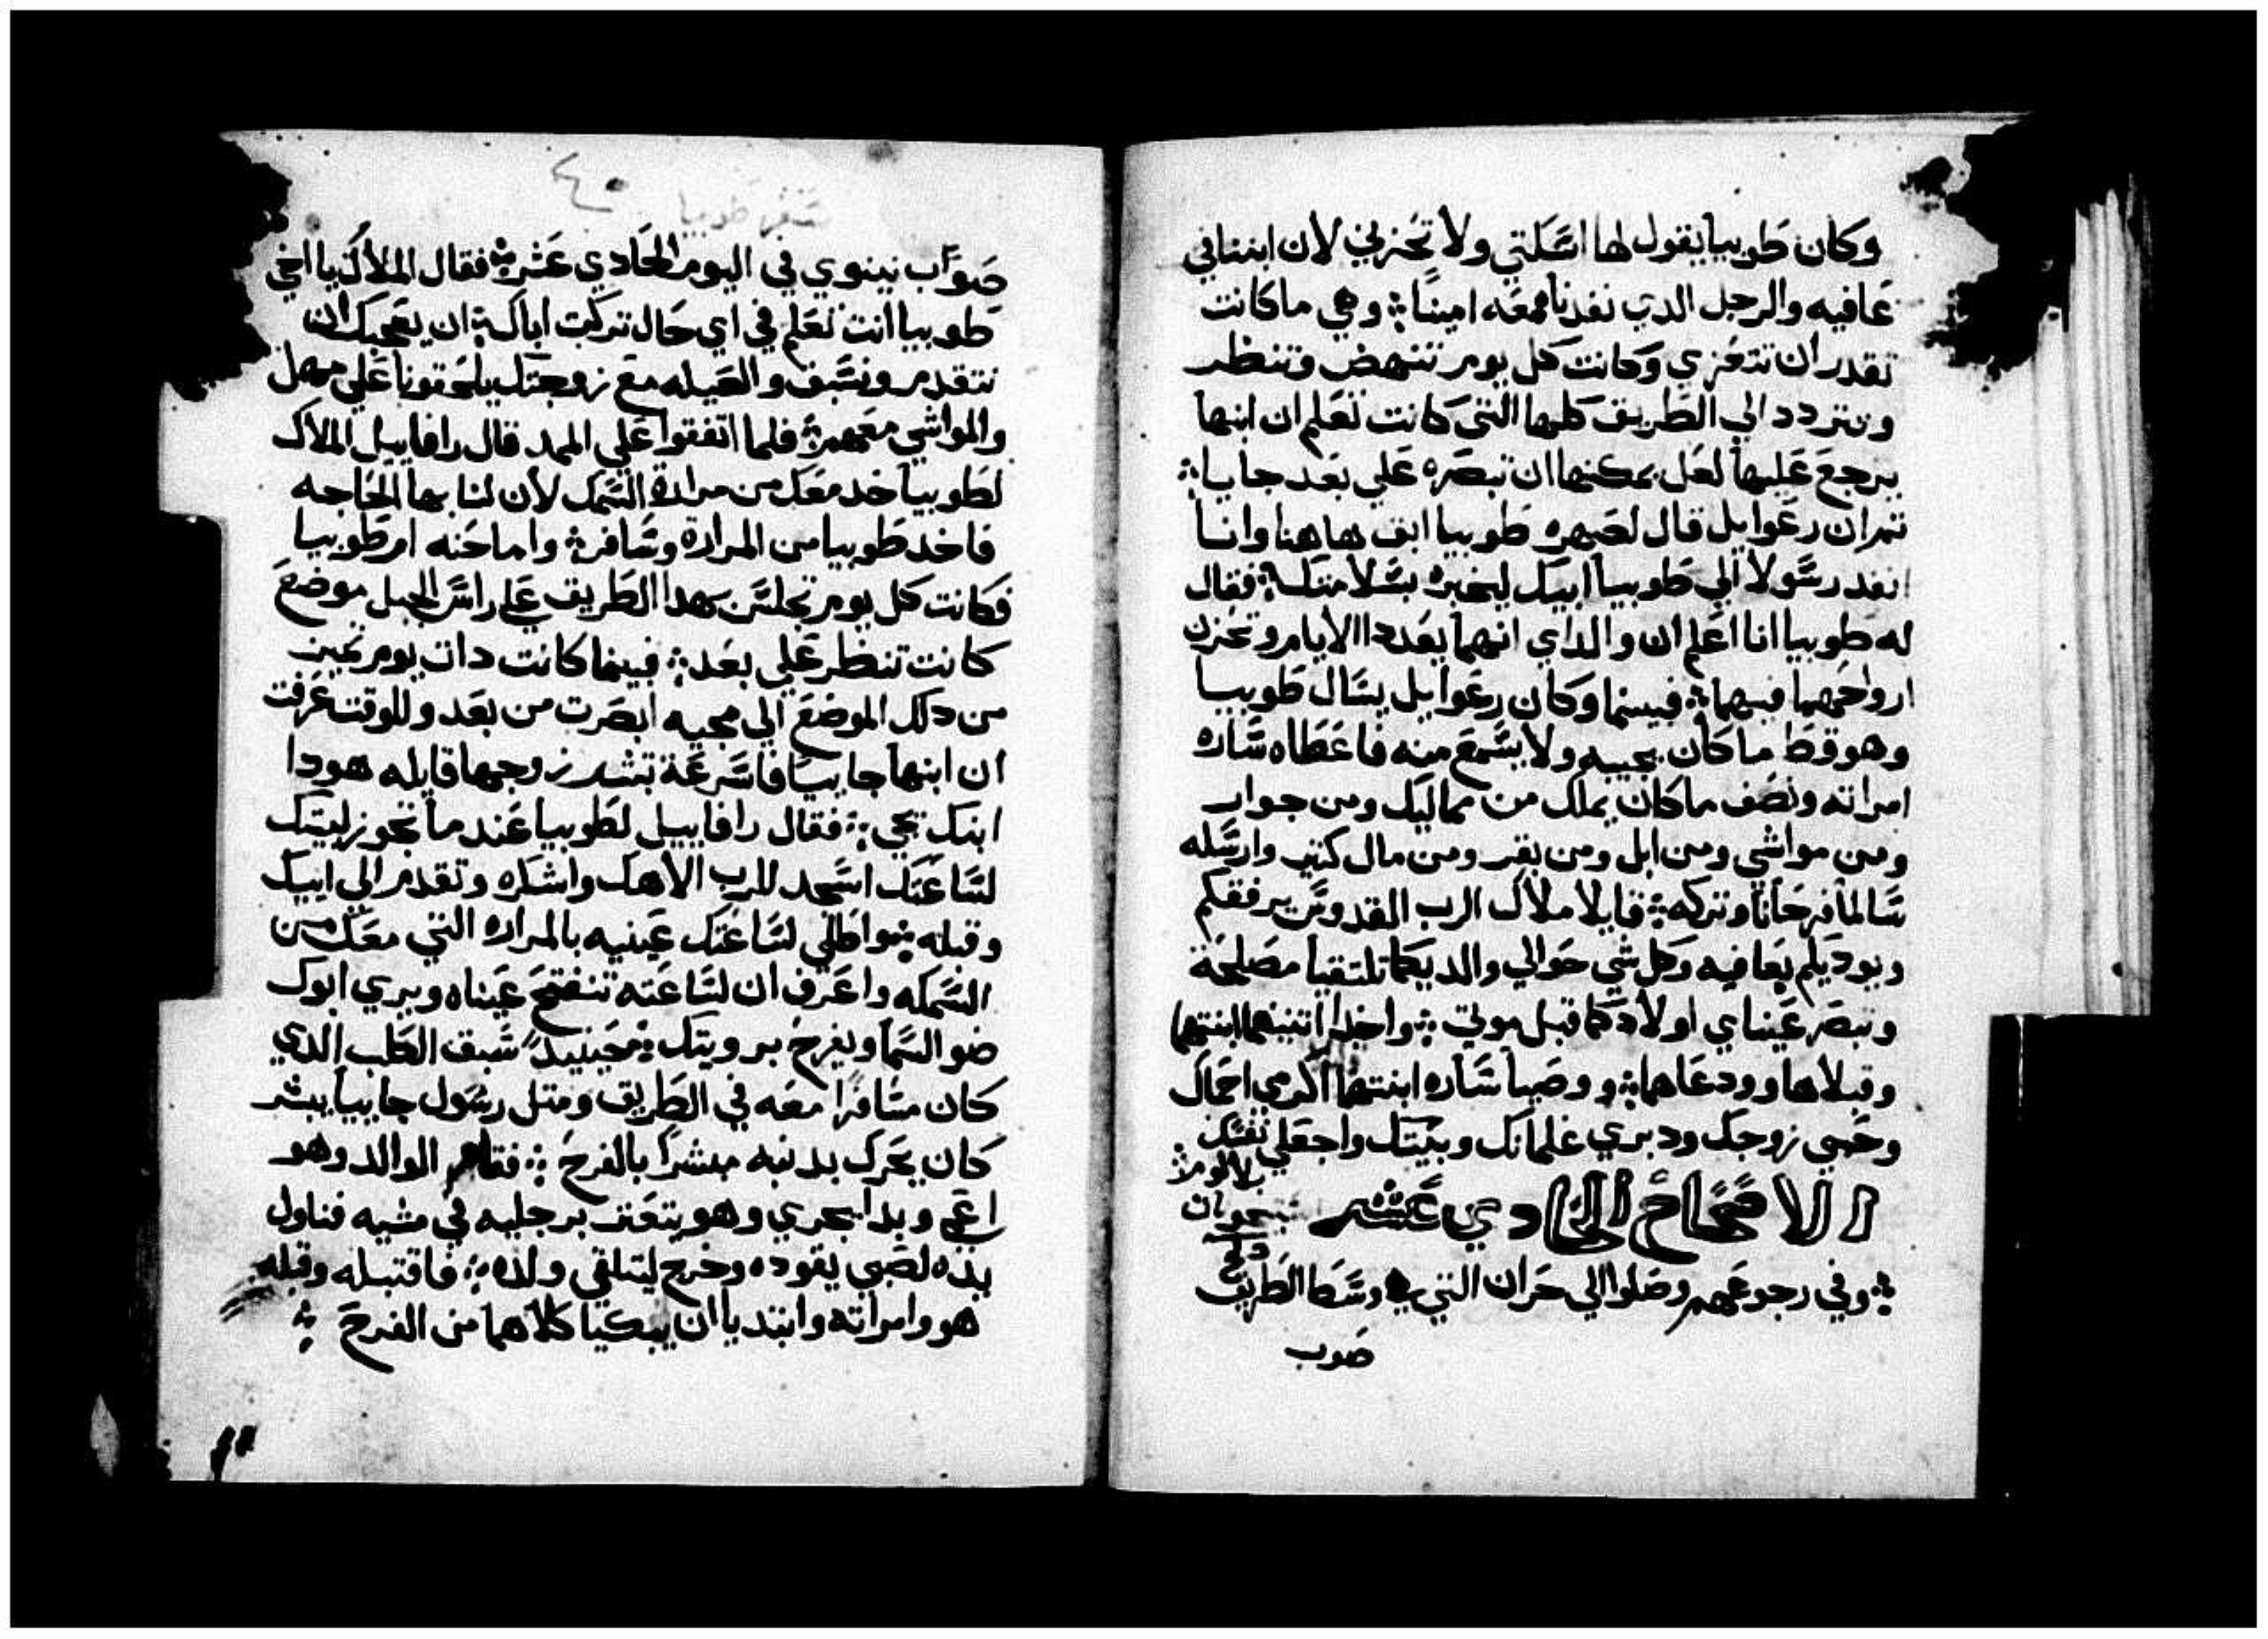 وكان طوبيا يقول لها اسكتي ولا تحزني لان ابننا في
عافيه والرجل الدي نفدناه معه امينًا܀ وهي ما كانت
تقدر ان تتعزي وكانت كل يوم تنهض وتنظر
وتتردد الي الطريق كلها التي كانت تعلم ان ابنها
يرجع عليها لعل يمكنها ان تبصره علي بعد جاييا܀
تم ان رعوايل قال لصهره طوبيا ابق هاهنا وانا
انفد رسولا الي طوبيا ابيك ليخبره بسلامتك܀ فقال
له طوبيا انا اعلم ان والداي انهما يعددا الايام وتحزن
ارواحهما فيهما܀ فبينما وكان رعوايل يسال طوبيا
وهو قط ما كان يجيبه ولا يسمع منه فاعطاه ساره
امراته ونصف ما كان يملك من مماليك ومن جوار
ومن مواشي ومن ابل ومن بقر ومن مال كتير وارسله
سالما فرحانا وتركه܀ قايلا ملاك الرب القدوس يرفقكم
ويوديكم بعافيه وكل شي حوالي والديكما تلتقيا مصلحة
وتبصر عيناي اولادكما قبل موتي܀ واخدا اتنينهما ابنتهما
وقبلاها وودعاها܀ ووصيا ساره ابنتهما اكرمي احماك
وحبي زوجك ودبري غلمانك وبيتك واجعلي نفسك
بلا لوم܀
الاصحاح الحادي عشر
܀ وفي رجوعهم وصلوا الي حران التي في وسط الطريق
صوب
سفر طوبيا ٤٠
صواب نينوي في اليوم الحادي عشر܀ فقال الملاك يا اخي
طوبيا انت تعلم في اي حال تركت اباك܀ ان يعجبك ان
نتقدم ونسبق والعيله مع زوجتك يلحقونا علي مهل
والمواشي معهم܀ فلما اتفقوا علي المهد قال رافاييل الملاك
لطوبيا خد معك من مرارة السمك لان لنا بها الحاجه
فاخد طوبيا من المراره وسافر܀ واما حنه ام طوبيا
فكانت كل يوم تجلس بهدا الطريق علي راس الجبل موضع
كانت تنظر علي بعد܀ فبينما كانت دات يوم تميز
من دلك الموضع الي مجيه ابصرت من بعد وللوقت عرفت
ان ابنها جاييا فاسرعة تبشر زوجها قايله هودا
ابنك يجي܀ فقال رافاييل لطوبيا عند ما تجوز لبيتك
لساعتك اسجد للرب الاهك واشكره وتقدم الي ابيك
وقبله܀ واطلي لساعتك عينيه بالمراره التي معك من
السمكه واعرف ان لساعته تنفتح عيناه ويري ابوك
ضو السما ويفرح برويتك܀ فحينيد سبق الكلب الدي
كان مسافرًا معه في الطريق ومتل رسول جاييا يبشر
كان يحرك بدنبه مبشرًا بالفرح܀ فقام الوالد وهو
اعمي وبدا يجري وهو يتعتر برجليه في مشيه فناول
يده لصبي يقوده وخرج ليتلقي ولده܀ فاقتبله وقبله
هو وامراته وابتديا ان يبكيا كلاهما من الفرح ܀